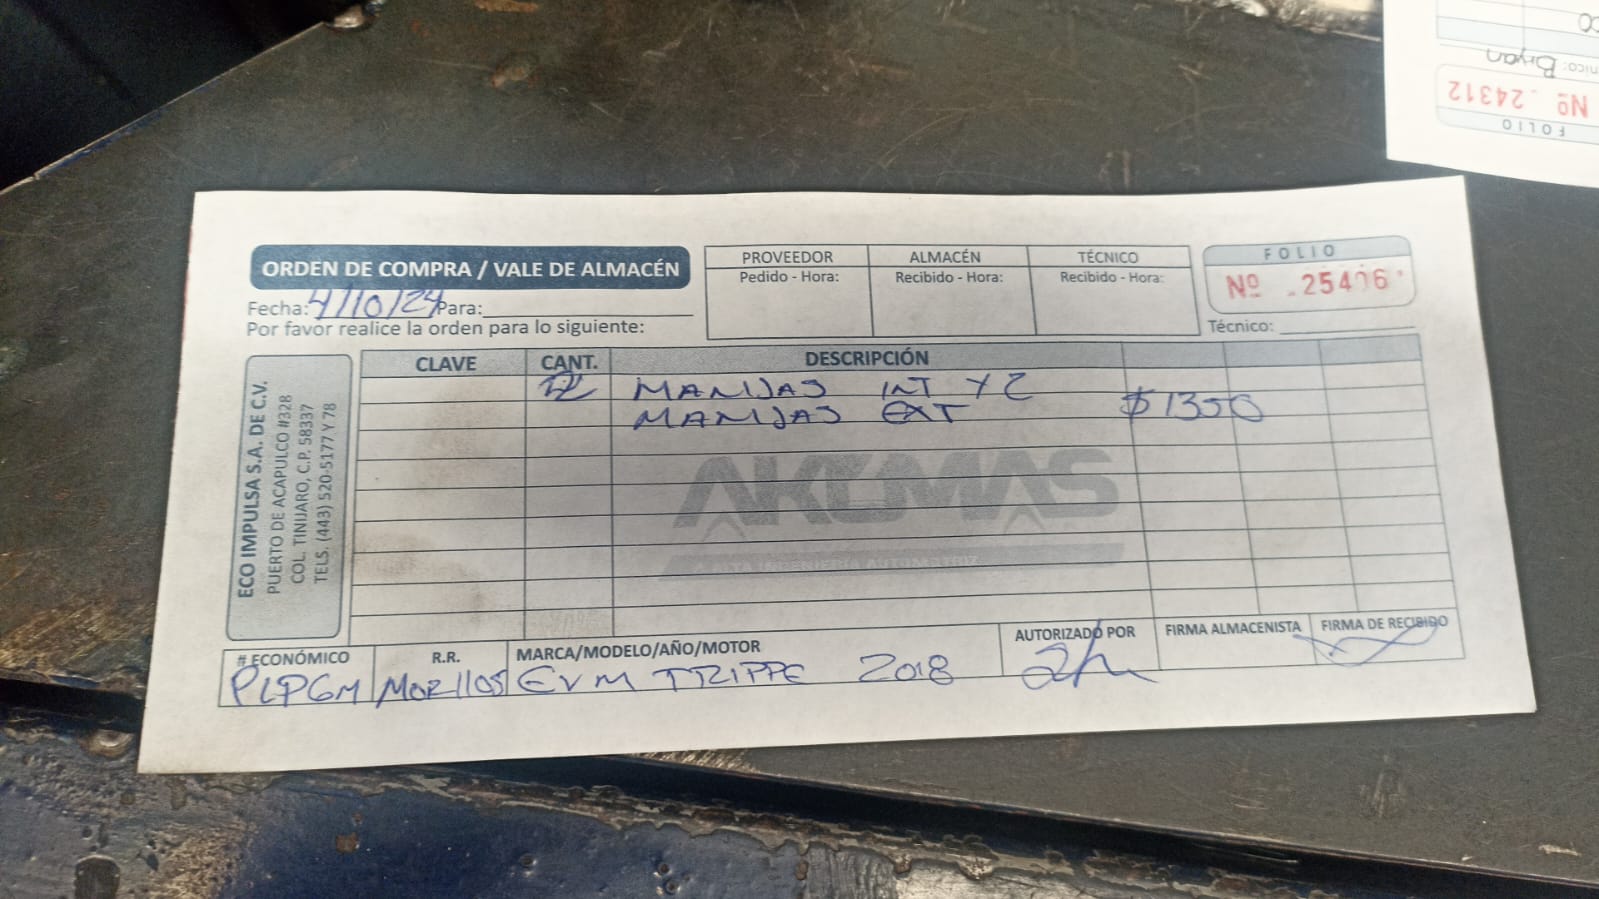 ORDEN DE COMPRA / VALE DE ALMACÉN
Fecha: 4/10/24 Para:
Por favor realice la orden para lo siguiente:
PROVEEDOR ALMACÉN TÉCNICO
Pedido - Hora: Recibido - Hora: Recibido - Hora:
FOLIO
Nº 25406
Técnico:
ECO IMPULSA S.A. DE C.V.
PUERTO DE ACAPULCO #328
COL. TINIJARO, C.P. 58337
TELS. (443) 520-5177 Y 78
CLAVE CANT. DESCRIPCIÓN
2 MANIJAS INT Y 2
MANIJAS EXT $1350
AKUMAS
ALTA INGENIERIA AUTOMOTRIZ
# ECONÓMICO R.R. MARCA/MODELO/AÑO/MOTOR AUTORIZADO POR FIRMA ALMACENISTA FIRMA DE RECIBIDO
2018
FOLIO
Nº 24312
nico: Bryan